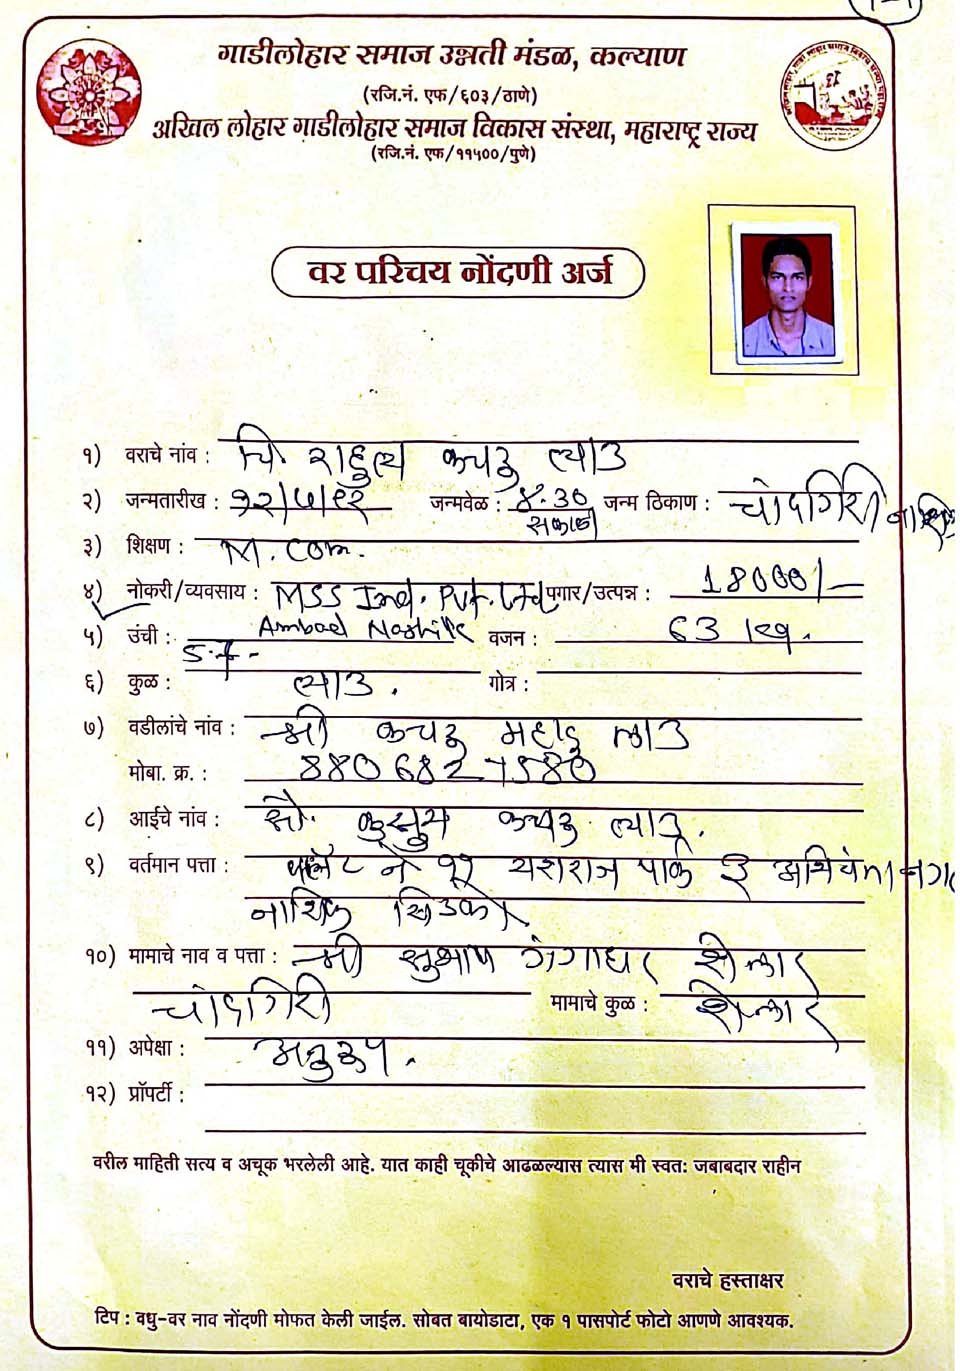 गाडीलोहार समाज उन्नती मंडळ, कल्याण
(रजि.नं. एफ/६०३/ठाणे)
अखिल लोहार गाडीलोहार समाज विकास संस्था, महाराष्ट्र राज्य
(रजि.नं. एफ/११५००/पुणे)
वर परिचय नोंदणी अर्ज
१) वराचे नांव : चि. राहुल कचरु लाड
२) जन्मतारीख : १२/५/९२ जन्मवेळ : ४.३० सकाळ जन्म ठिकाण : चांदगिरी नाशिक
३) शिक्षण : M. Com.
४) नोकरी/व्यवसाय : MSS Ind. Pvt. Ltd पगार/उत्पन्न : 18000/-
Ambad Nashik
५) उंची : 5.7 - वजन : 63 kg.
६) कुळ : लाड . गोत्र :
७) वडीलांचे नांव : श्री कचरु महादु लाड
मोबा. क्र. : 8806827580
८) आईचे नांव : सौ. कुसुम कचरु लाड .
९) वर्तमान पत्ता : नं ११ यशराज पार्क
नाशिक सिडको
१०) मामाचे नाव व पत्ता : श्री सुभाष गंगाधर शेलार
चांदगिरी मामाचे कुळ : शेलार
११) अपेक्षा : अनुरुप .
१२) प्रॉपर्टी :
वरील माहिती सत्य व अचूक भरलेली आहे. यात काही चूकीचे आढळल्यास त्यास मी स्वत: जबाबदार राहीन
वराचे हस्ताक्षर
टिप : वधु-वर नाव नोंदणी मोफत केली जाईल. सोबत बायोडाटा, एक १ पासपोर्ट फोटो आणणे आवश्यक.